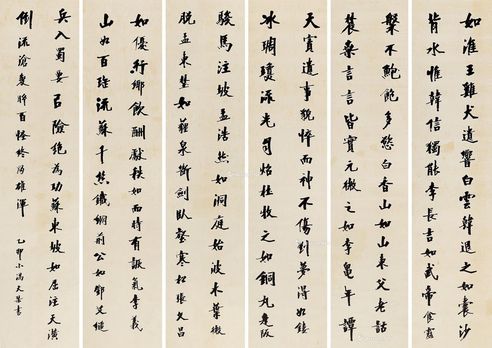 如淮王雞犬遺響白雲韓退之如囊沙
背水惟韓信獨能李長吉如武帝食露
槃不鮑飽多慾白香山如山東父老
農桑言言皆實元微之如李龜年譚
天寶遺事貌悴而神不傷劉夢得如鏤
冰琱瓊流光自炤杜牧之如銅丸走阪
駿馬注坡孟浩然如洞庭始波木葉微
脫孟東埜如薶泉斷劍臥壑寒松張文昌
如優行鄉飲酬獻秩如而時有詼氣李義
山如百琲流蘇千絲鐵網荊公如鄧艾縋
兵入蜀要㠯險絕為功蘇東坡如屈注天潢
倒流滄變百怪終乃雄渾
乙卯小滿天書